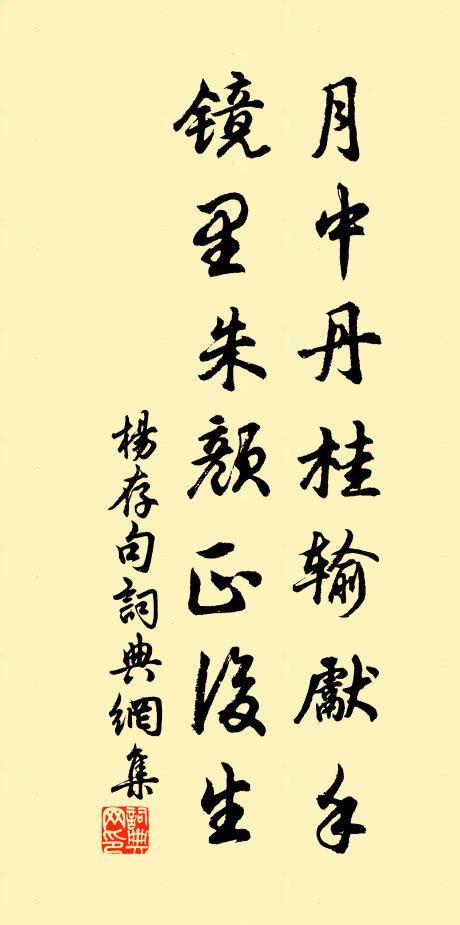 月中丹桂输獻手
镜里朱颜正後生
楊存句詞典網集
詞典
网印